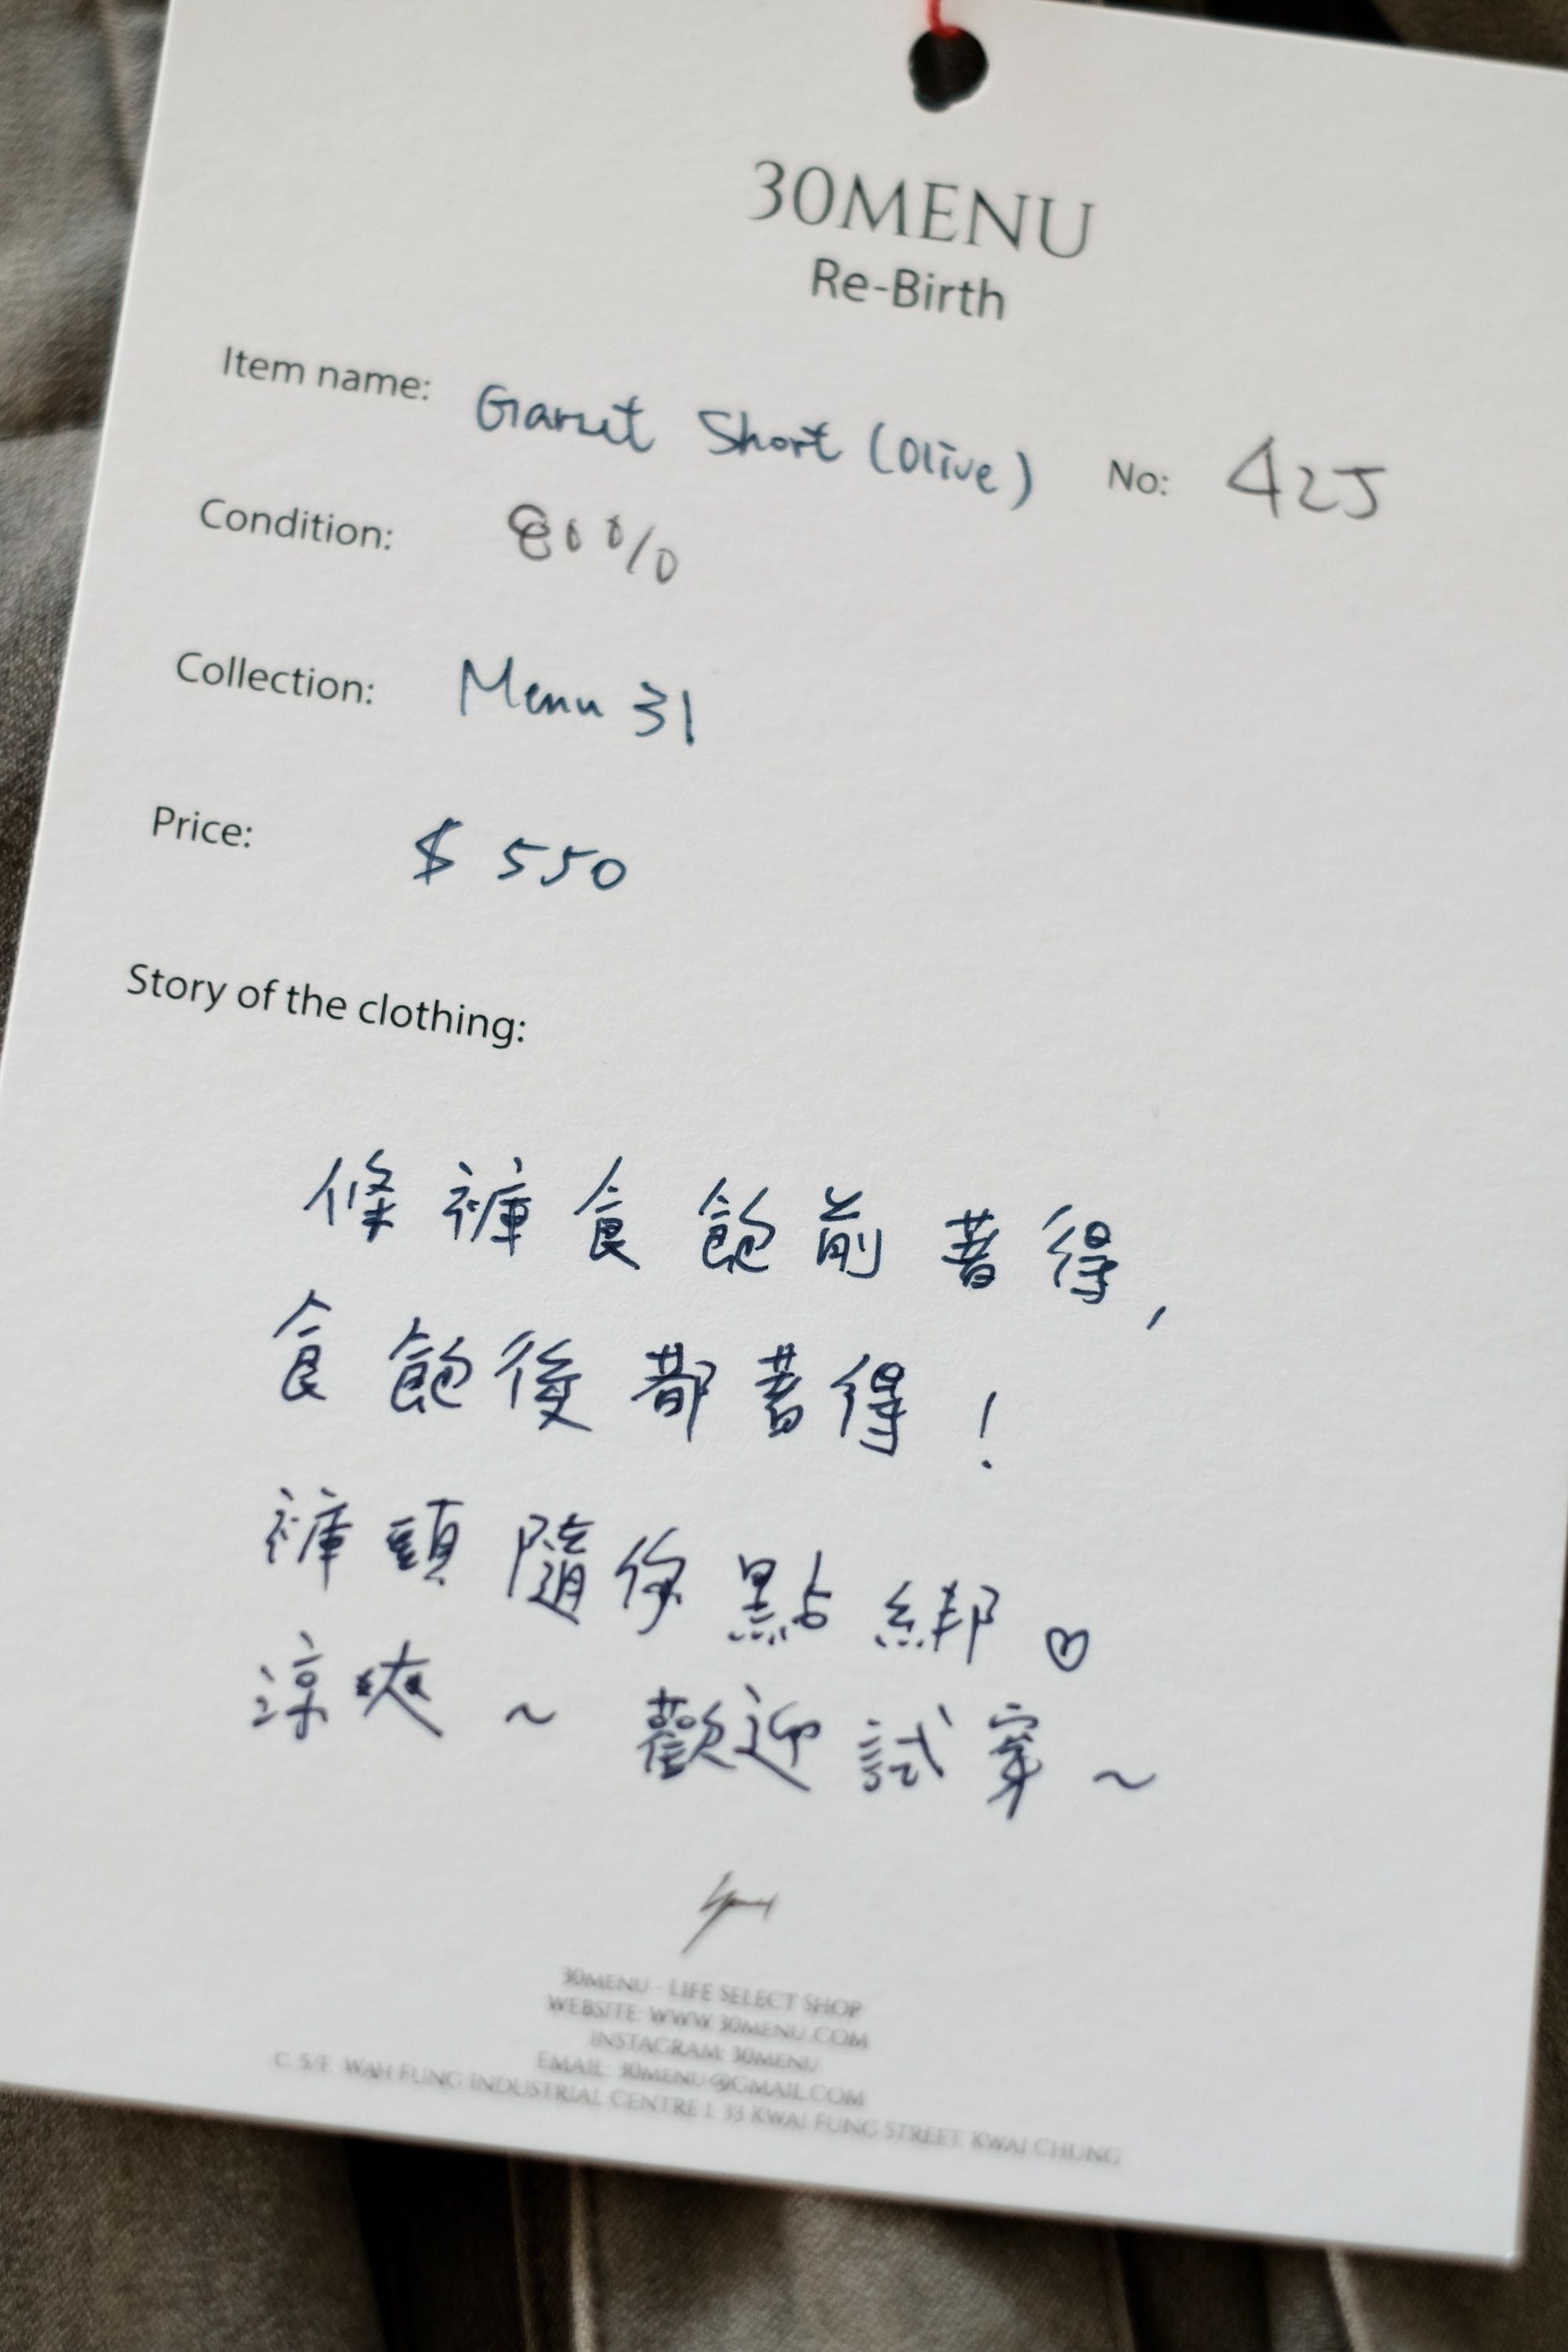 30MENU
Re-Birth
Item name: Garut Short (Olive) No: 425
Condition: 80%
Collection: Menu 31
Price: $ 550
Story of the clothing:
條褲食飽前著得,
食飽後都著得!
褲頭隨你點綁♡
涼爽~ 歡迎試穿~
30MENU - LIFE SELECT SHOP
WEBSITE: WWW.30MENU.COM
INSTAGRAM: 30MENU
EMAIL: 30MENU@GMAIL.COM
C. 5/F. WAH FUNG INDUSTRIAL CENTRE 33 KWAI FUNG STREET, KWAI CHUNG